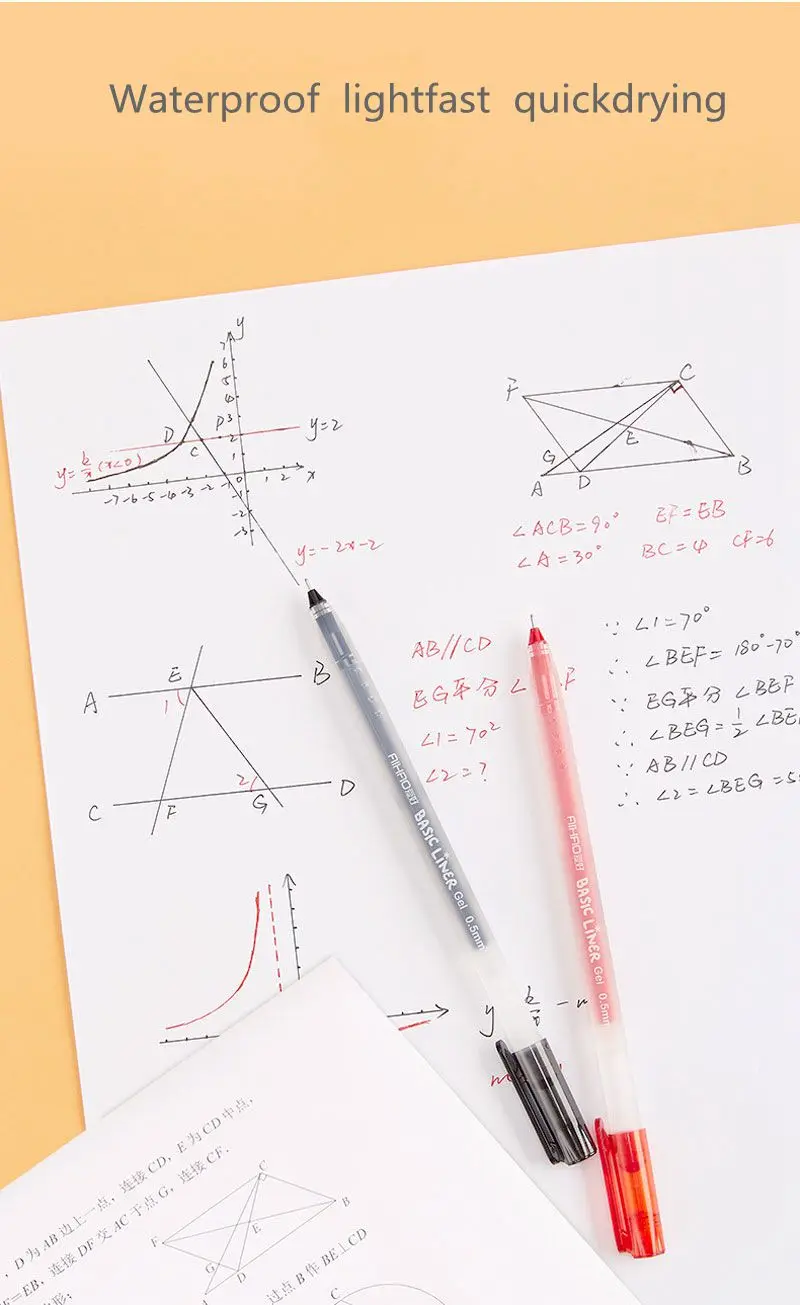 Waterproof lightfast quickdrying
y
7
6
5
4
3
2
1
0
-7 -6 -5 -4 -3 -2 -1
1 2 x
-1
-2
-3
D
C
P
y=2
y=k/x (x<0)
y=-2x-2
F
C
E
G
A
D
B
∠ACB=90° EF=EB
∠A=30° BC=4 CF=6
A
E
B
1
2
C
F
G
D
AB//CD
EG平分∠ F
∠1=70²
∠2=?
∵ ∠1=70°
∴ ∠BEF=180°-70°
∵ EG平分∠BEF
∴ ∠BEG=1/2∠BE
∵ AB//CD
∴ ∠2=∠BEG=5
AIHAO爱好 BASIC LiNER Gel 0.5mm
AIHAO爱好 BASIC LiNER Gel 0.5m
y
，D为AB边上一点，连接CD，E为CD中点，
F=EB，连接DF交AC于点G，连接CF.
形；
C
B
F
E
G
D
A
过点B作BE⊥CD
C